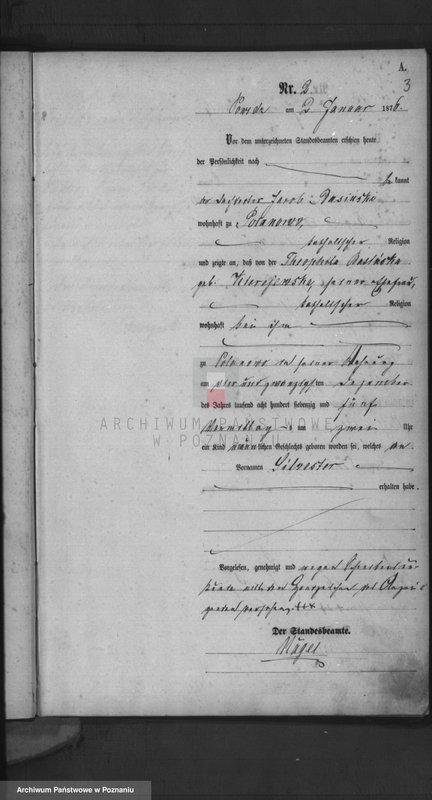 A.
3
Nr. 2.
Powidz am 2 Januar 1876.
Vor dem unterzeichneten Standesbeamten erschien heute
der Persönlichkeit nach
be kannt
der Jacob
wohnhaft zu Polanowo,
katholischer Religion
und zeigte an, daß von der Theophila
geb. seiner Ehefrau,
katholischer Religion
wohnhaft bei ihm
zu Polanowo in seiner Wohnung
am vier und zwanzigsten Dezember
des Jahres tausend acht hundert siebenzig und fünf
Vormittag um zwei Uhr
ein Kind männlichen Geschlechts geboren worden sei, welches den
Vornamen Silvester
erhalten habe.
Vorgelesen, genehmigt und wegen
mit den Handzeichen des
versehen +++
Der Standesbeamte.
Nägel
ARCHIWUM PAŃSTWOWE
W POZNANIU
Archiwum Państwowe w Poznaniu